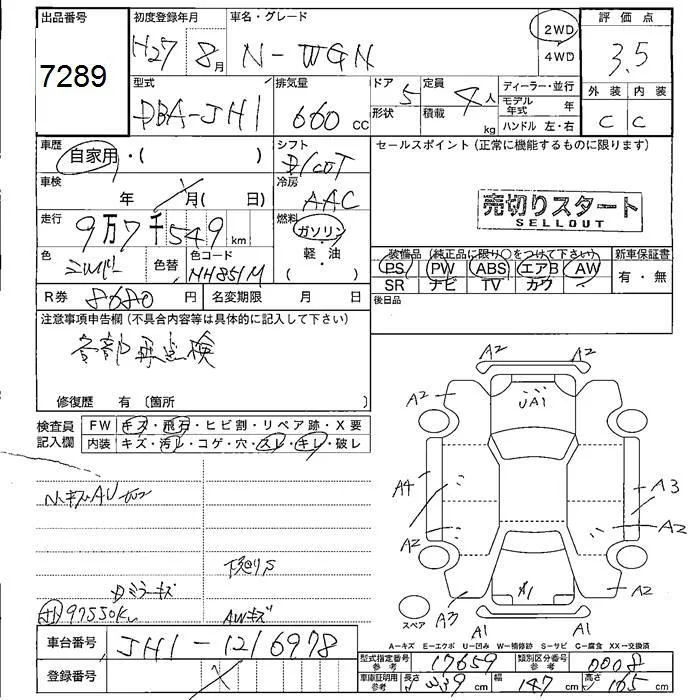 出品番号 初度登録年月 車名・グレード 評価点
7289 H27 8月 N-WGN 2WD 4WD 3.5
型式 排気量 ドア形状 定員積載 ディーラー・並行 外装 内装
DBA-JH1 660cc 5 4人 kg モデル年式 年 C C
ハンドル 左・右
車歴 自家用・( ) シフト D/CVT セールスポイント(正常に機能するものに限ります)
車検 年 月( 日) 冷房 AAC
売切りスタート
SELLOUT
走行 9万7千549km 燃料 ガソリン・軽・油( )
色 シルバー 色替 色コード NH851M
装備品(純正品に限り○をつけて下さい) 新車保証書
PS PW ABS エアB AW 有・無
SR ナビ TV カワ
R券 8680円 名変期限 月 日 後日品
注意事項申告欄(不具合内容等は具体的に記入して下さい)
各部再点検
修復歴 有〔箇所 〕
検査員記入欄 FW キズ・飛石・ヒビ割・リペア跡・X要
内装 キズ・汚レ・コゲ・穴・スレ・キレ・破レ
A2 A2
A2 UA1 A2
A4 A3
A2 A2
A3 A1 A2
スペア A1 A1
ミラーキズ 下廻りサ
97550K AWキズ
A-キズ E-エクボ U-凹み W-補修跡 S-サビ C-腐食 XX-交換済
車台番号 JH1-1216978
型式指定番号参考 17659 類別区分番号参考 0008
登録番号
車庫証明用参考 長さ 339cm 幅 147cm 高さ 165cm